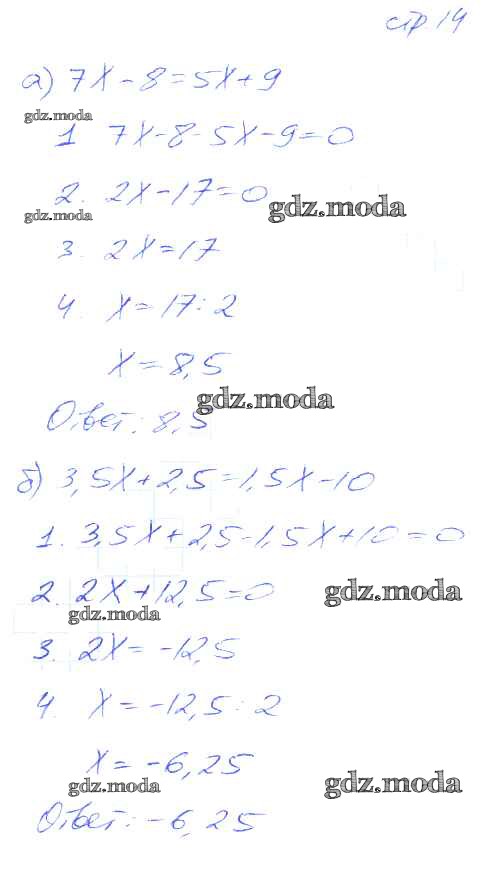 стр 14
а) 7x-8=5x+9
gdz.moda
1 7x-8-5x-9=0
2. 2x-17=0
gdz.moda
gdz.moda
3. 2x=17
4. x=17:2
x=8,5
gdz.moda
Ответ: 8,5
б) 3,5x+2,5=1,5x-10
1. 3,5x+2,5-1,5x+10=0
2. 2x+12,5=0
gdz.moda
gdz.moda
3. 2x=-12,5
4. x=-12,5:2
x=-6,25
gdz.moda
gdz.moda
Ответ: -6,25